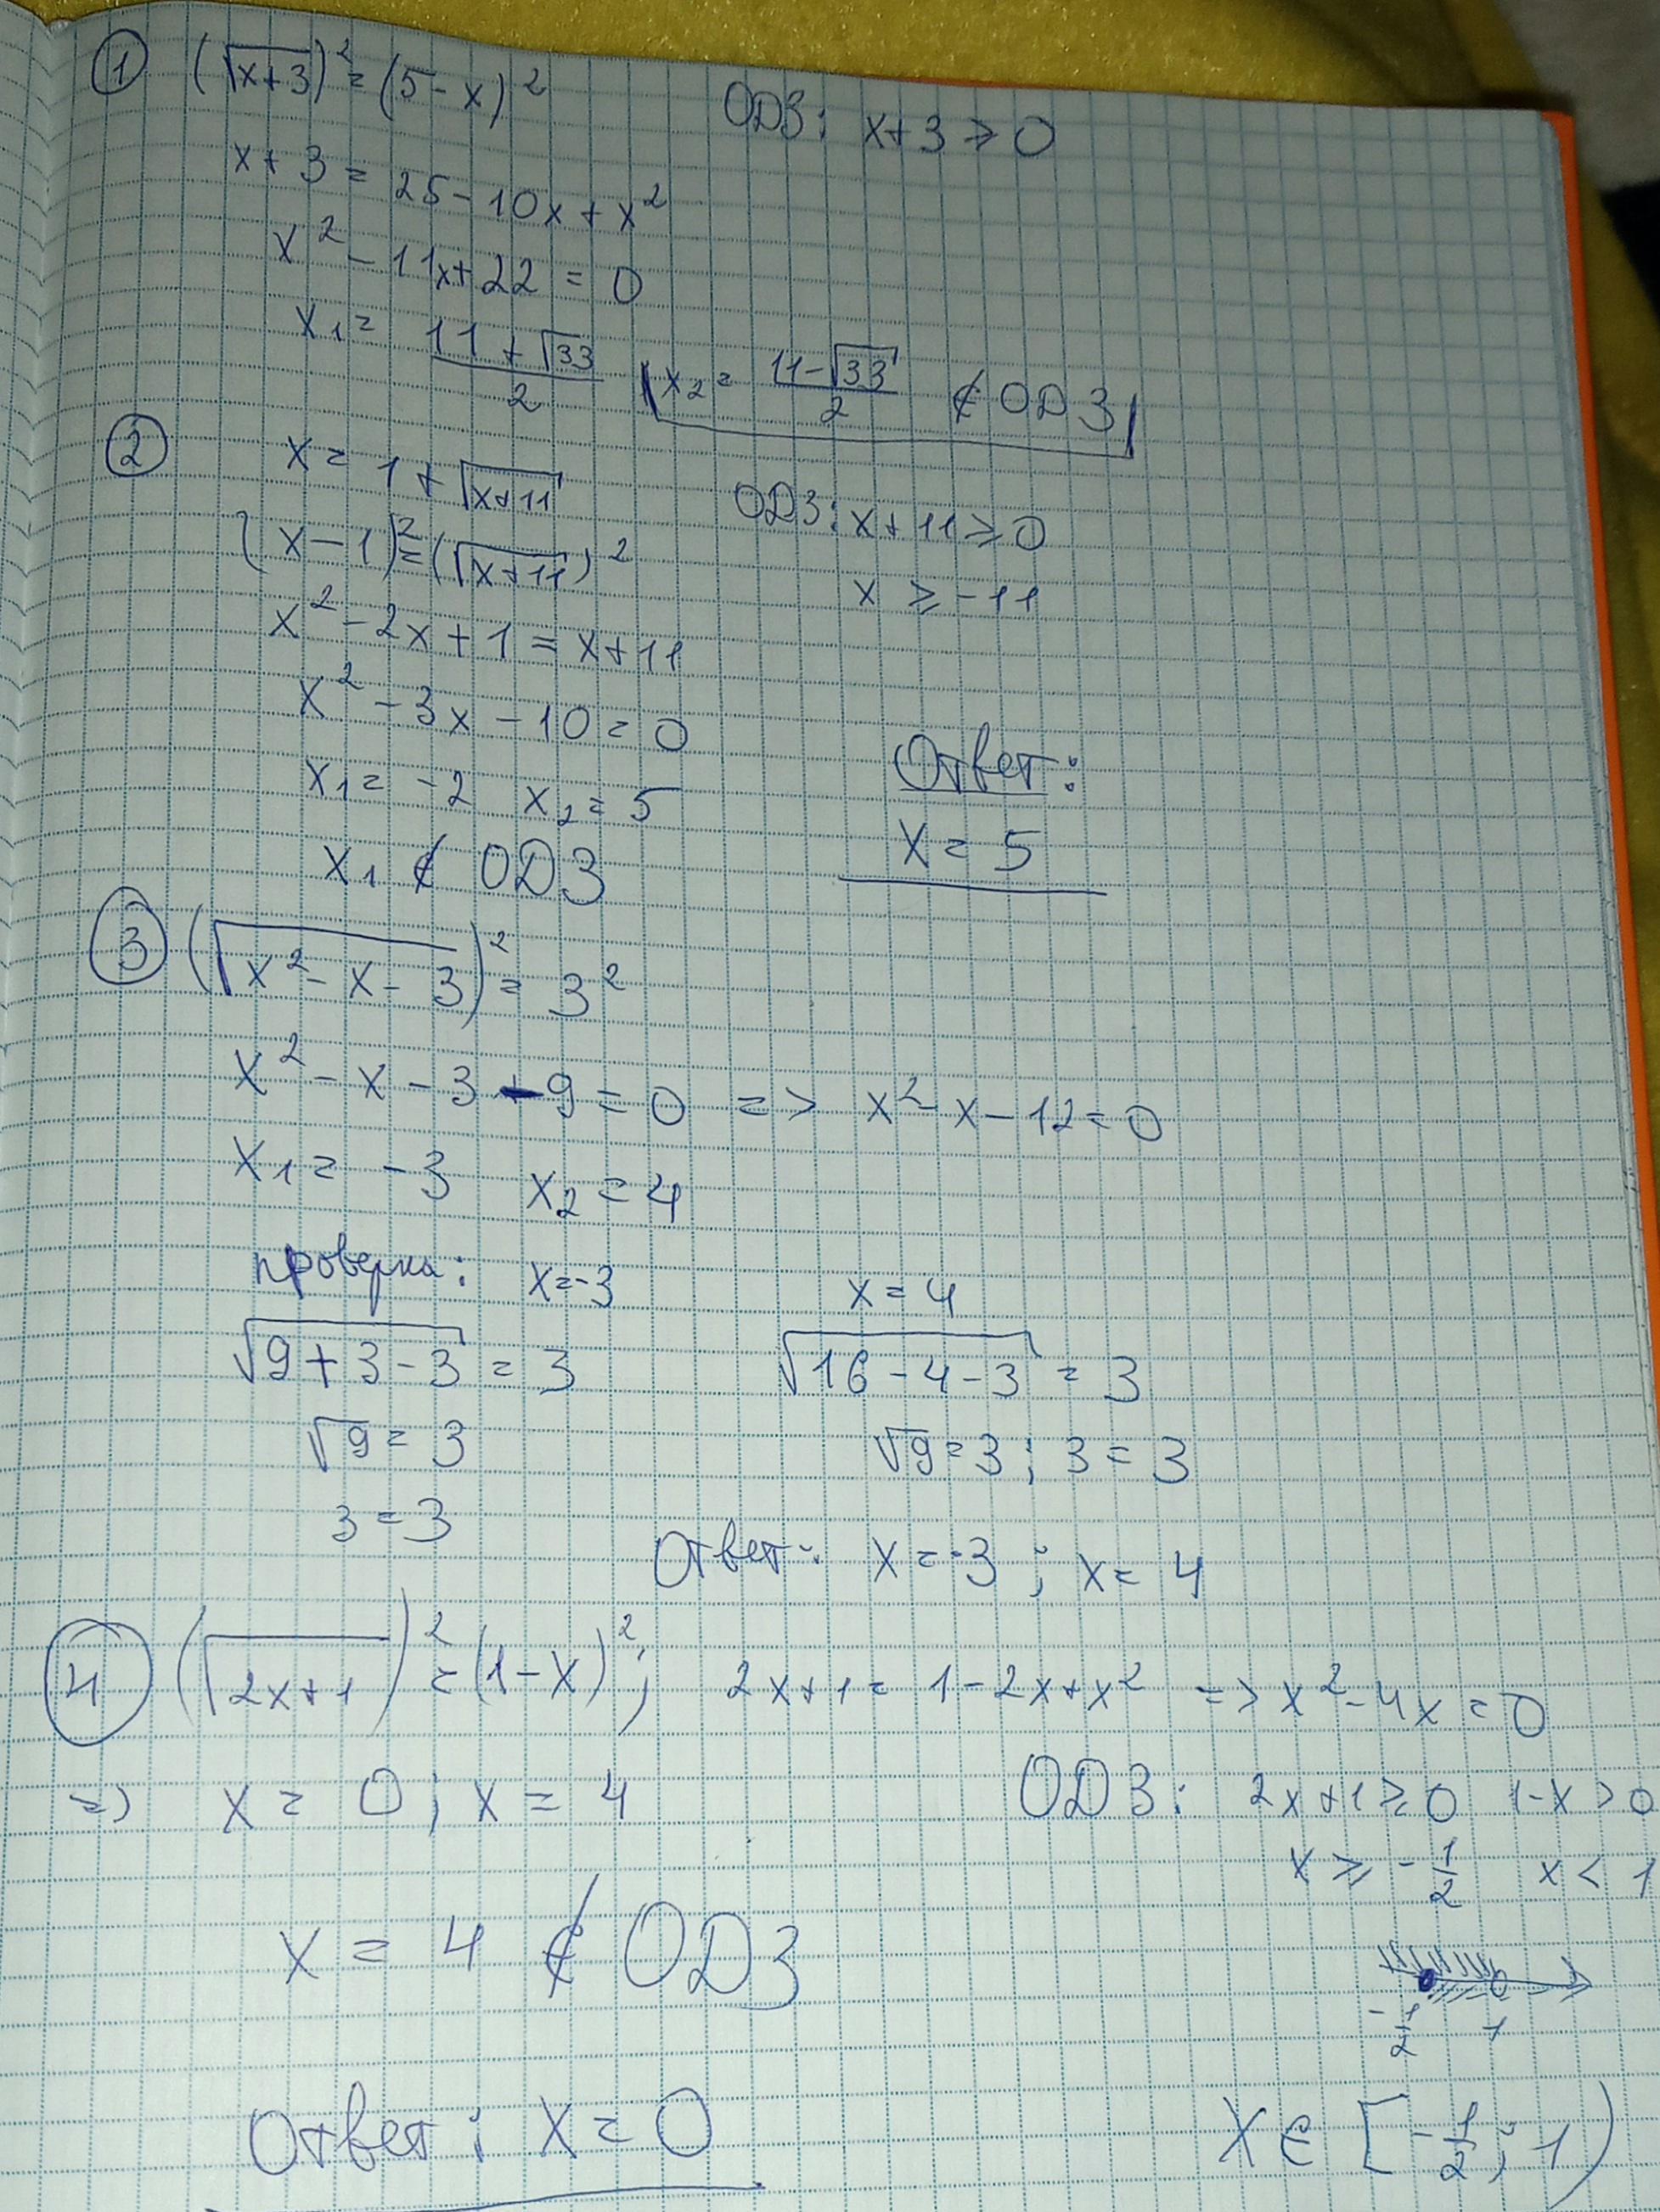 ① (√x+3)² = (5-x)² ОДЗ: x+3 ≥ 0
x+3 = 25-10x+x²
x² - 11x+22 = 0
x₁ = (11+√33)/2 x₂ = (11-√33)/2 ∉ ОДЗ
② x = 1+√x+11 ОДЗ: x+11 ≥ 0
(x-1)² = (√x+11)² x ≥ -11
x² - 2x + 1 = x+11
x² - 3x - 10 = 0
x₁ = -2 x₂ = 5
x₁ ∉ ОДЗ
Ответ:
x = 5
③ (√x² - x - 3)² = 3²
x² - x - 3 - 9 = 0 => x² - x - 12 = 0
x₁ = -3 x₂ = 4
проверка: x=-3 x = 4
√9+3-3 = 3 √16-4-3 = 3
√9 = 3 √9 = 3; 3 = 3
3 = 3
Ответ: x = -3; x = 4
④ (√2x+1)² = (1-x)²; 2x+1 = 1-2x+x² => x² - 4x = 0
=> x = 0; x = 4 ОДЗ: 2x+1 ≥ 0 1-x > 0
x ≥ -1/2 x < 1
x = 4 ∉ ОДЗ
-1/2 1
Ответ: x = 0 x ∈ [-1/2; 1)